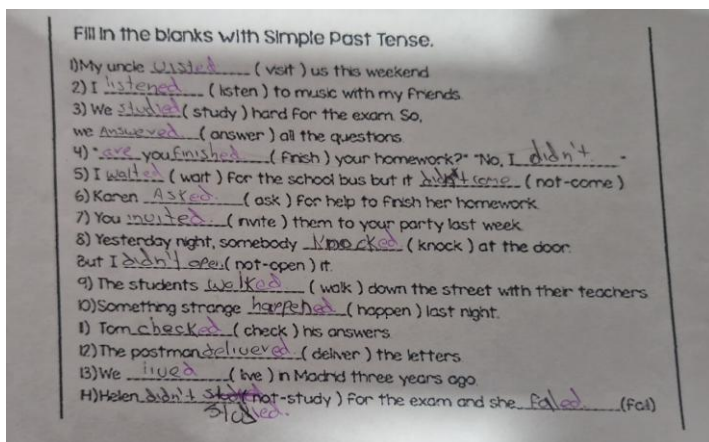 Fill in the blanks with Simple Past Tense.
1) My uncle visted ( visit ) us this weekend
2) I listened ( listen ) to music with my friends.
3) We studied ( study ) hard for the exam. So,
we Answered ( answer ) all the questions.
4) "are you finished ( finish ) your homework?" "No, I didn't."
5) I waited ( wait ) for the school bus but it didn't come ( not-come )
6) Karen Asked ( ask ) for help to finish her homework.
7) You invited ( invite ) them to your party last week.
8) Yesterday night, somebody Knocked ( knock ) at the door.
But I didn't open ( not-open ) it.
9) The students walked ( walk ) down the street with their teachers
10) Something strange happened ( happen ) last night.
11) Tom checked ( check ) his answers
12) The postman delivered ( deliver ) the letters.
13) We lived ( live ) in Madrid three years ago.
14) Helen didn't ( not-study ) for the exam and she failed (fail)